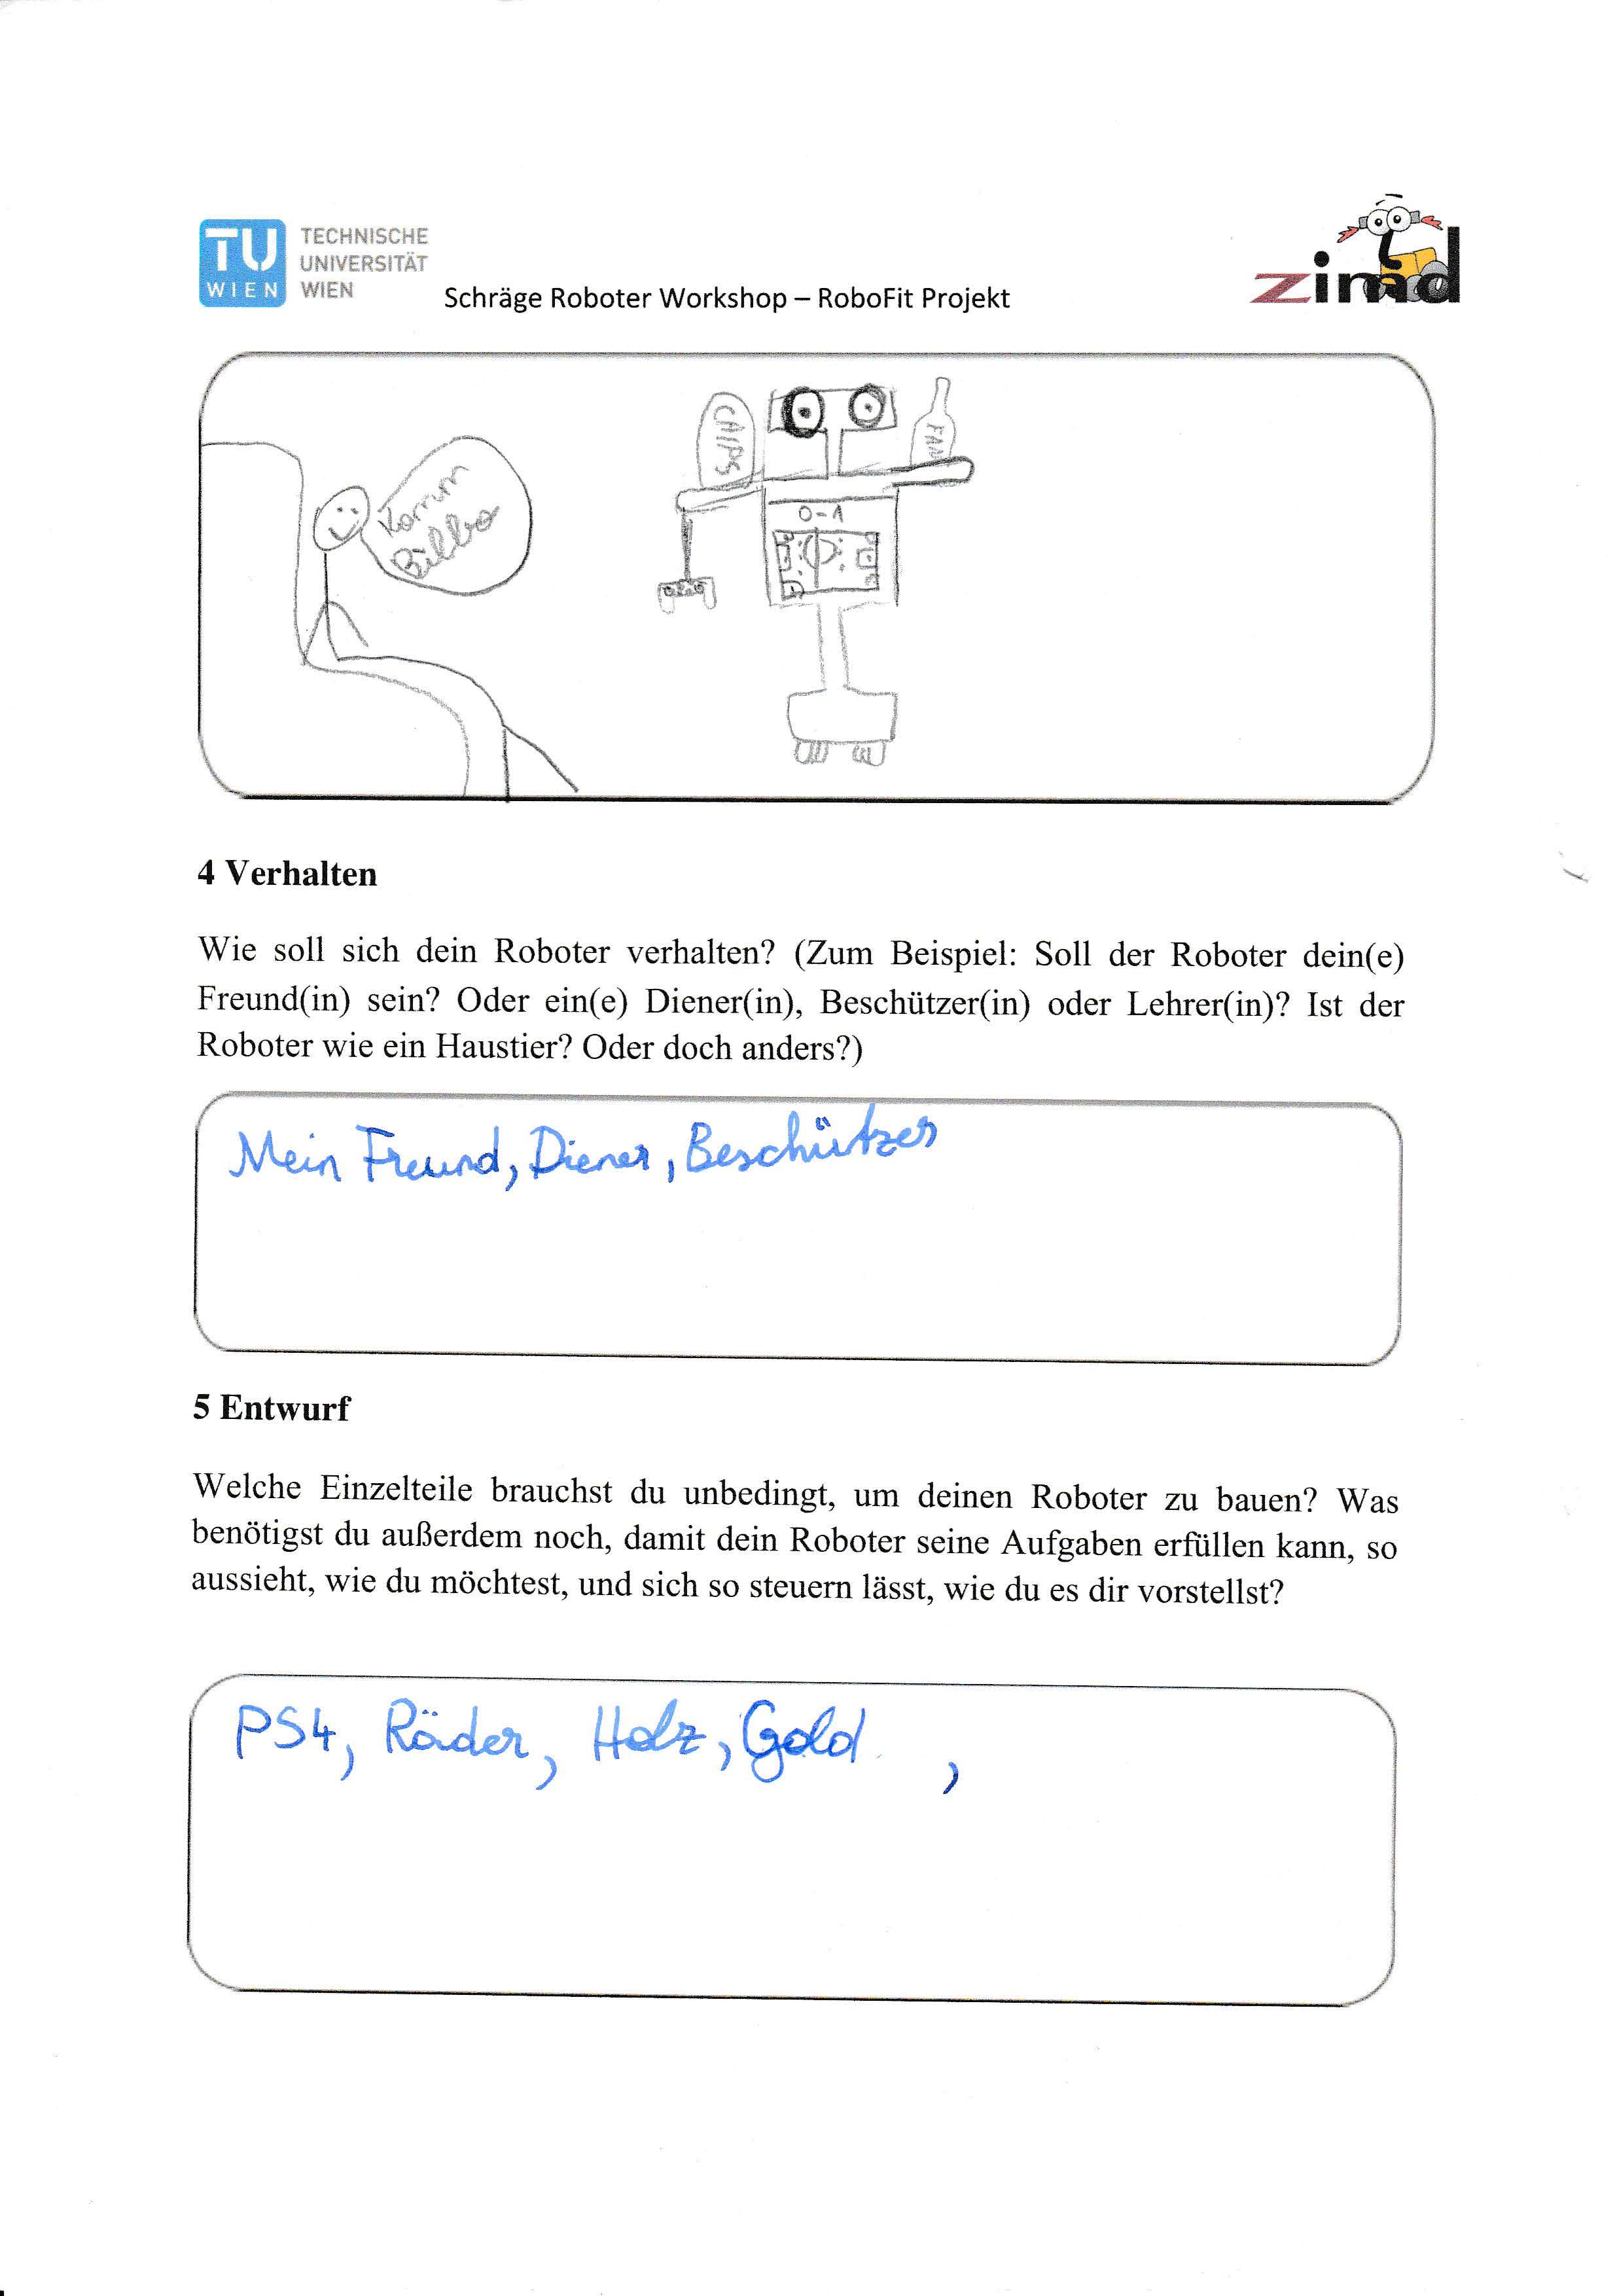 TU
WIEN
TECHNISCHE
UNIVERSITÄT
WIEN
Schräge Roboter Workshop – RoboFit Projekt
zimd
CHIPS
FAN
Komm
Bilbo
0-1
4 Verhalten
Wie soll sich dein Roboter verhalten? (Zum Beispiel: Soll der Roboter dein(e)
Freund(in) sein? Oder ein(e) Diener(in), Beschützer(in) oder Lehrer(in)? Ist der
Roboter wie ein Haustier? Oder doch anders?)
Mein Freund, Diener, Beschützer
5 Entwurf
Welche Einzelteile brauchst du unbedingt, um deinen Roboter zu bauen? Was
benötigst du außerdem noch, damit dein Roboter seine Aufgaben erfüllen kann, so
aussieht, wie du möchtest, und sich so steuern lässt, wie du es dir vorstellst?
PS4, Räder, Holz, Gold ,